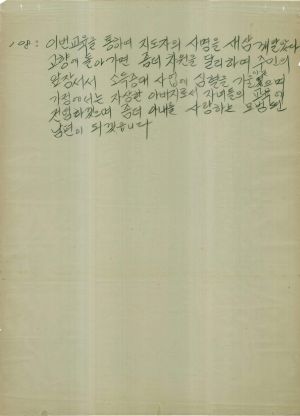 108: 이번교육을 통하여 지도자의 사명을 새삼 깨달았다
고향에 돌아가면 좀더 차원을 달리하여 주민의
앞장서서 소득증대 사업에 심혈을 기울였으며
가정에서는 자상한 아버지로서 자녀들의 교육에
전념하겠으며 좀더 아내를 사랑하는 모범된
남편이 되겠습니다